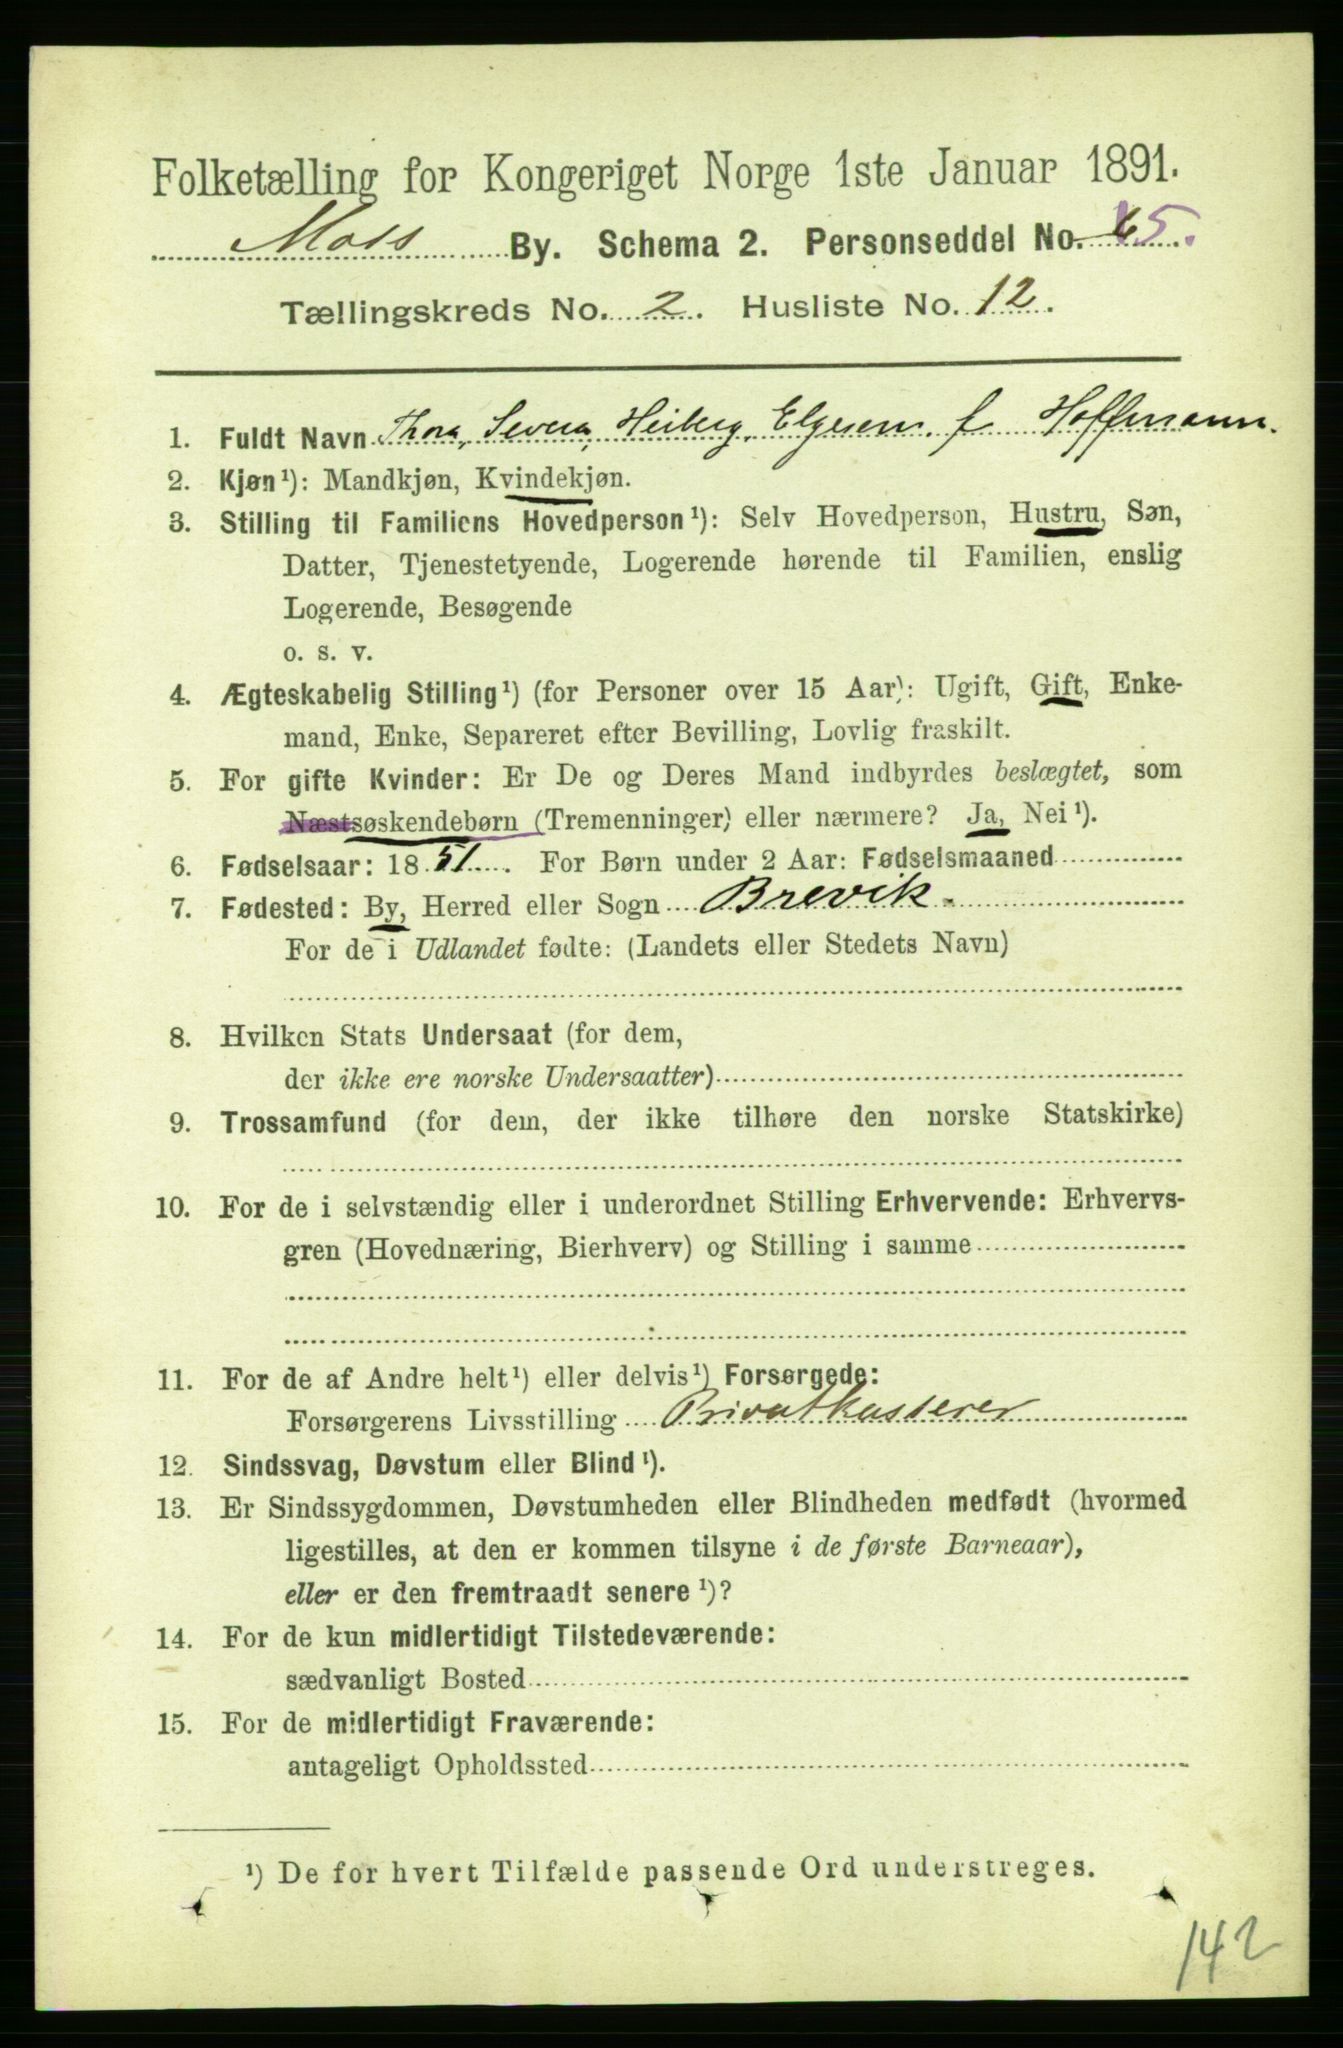 Folketælling for Kongeriget Norge 1ste Januar 1891.
Moss By. Schema 2. Personseddel No. 6 5.
Tællingskreds No. 2. Husliste No. 12.
1. Fuldt Navn Thora, Severa, Heiberg, Elgesem. f Hoffmann.
2. Kjøn¹): Mandkjøn, Kvindekjøn.
3. Stilling til Familiens Hovedperson¹): Selv Hovedperson, Hustru, Søn,
Datter, Tjenestetyende, Logerende hørende til Familien, enslig
Logerende, Besøgende
o. s. v.
4. Ægteskabelig Stilling¹) (for Personer over 15 Aar): Ugift, Gift, Enke-
mand, Enke, Separeret efter Bevilling, Lovlig fraskilt.
5. For gifte Kvinder: Er De og Deres Mand indbyrdes beslægtet, som
Næstsøskendebørn (Tremenninger) eller nærmere? Ja, Nei¹).
6. Fødselsaar: 1851. For Børn under 2 Aar: Fødselsmaaned
7. Fødested: By, Herred eller Sogn Brevik.
For de i Udlandet fødte: (Landets eller Stedets Navn)
8. Hvilken Stats Undersaat (for dem,
der ikke ere norske Undersaatter)
9. Trossamfund (for dem, der ikke tilhøre den norske Statskirke)
10. For de i selvstændig eller i underordnet Stilling Erhvervende: Erhvervs-
gren (Hovednæring, Bierhverv) og Stilling i samme
11. For de af Andre helt¹) eller delvis¹) Forsørgede:
Forsørgerens Livsstilling Privatkasserer
12. Sindssvag, Døvstum eller Blind¹).
13. Er Sindssygdommen, Døvstumheden eller Blindheden medfødt (hvormed
ligestilles, at den er kommen tilsyne i de første Barneaar),
eller er den fremtraadt senere¹)?
14. For de kun midlertidigt Tilstedeværende:
sædvanligt Bosted
15. For de midlertidigt Fraværende:
antageligt Opholdssted
¹) De for hvert Tilfælde passende Ord understreges.
142